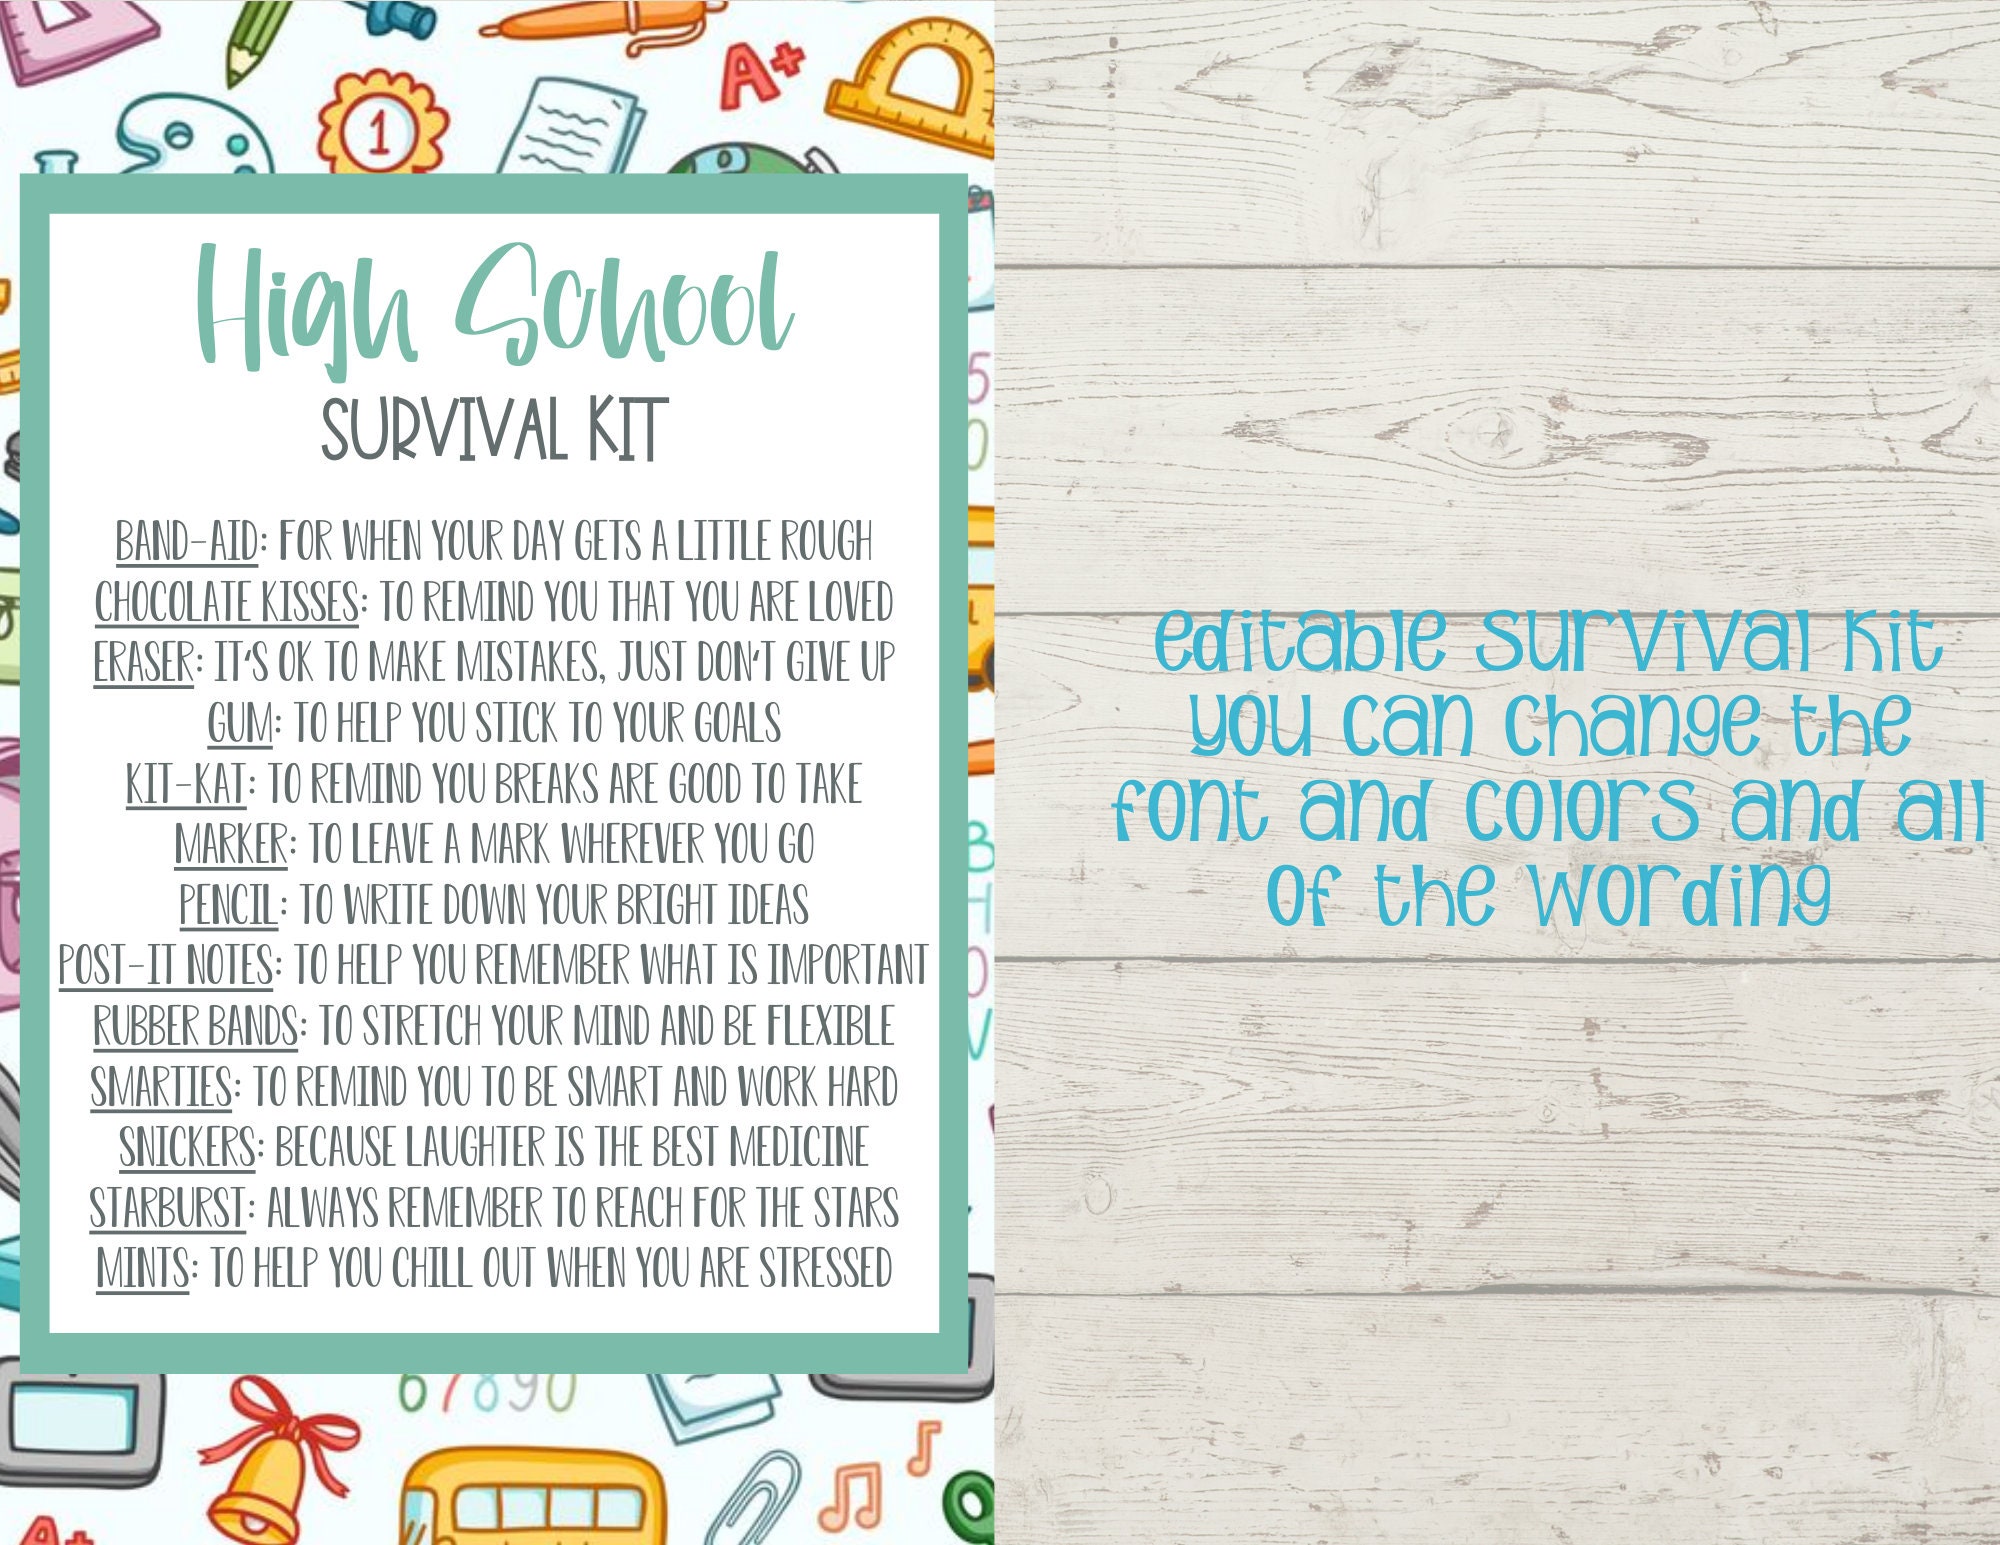 A+
1
High School
SURVIVAL KIT
BAND-AID: FOR WHEN YOUR DAY GETS A LITTLE ROUGH
CHOCOLATE KISSES: TO REMIND YOU THAT YOU ARE LOVED
ERASER: IT'S OK TO MAKE MISTAKES, JUST DON'T GIVE UP
GUM: TO HELP YOU STICK TO YOUR GOALS
KIT-KAT: TO REMIND YOU BREAKS ARE GOOD TO TAKE
MARKER: TO LEAVE A MARK WHEREVER YOU GO
PENCIL: TO WRITE DOWN YOUR BRIGHT IDEAS
POST-IT NOTES: TO HELP YOU REMEMBER WHAT IS IMPORTANT
RUBBER BANDS: TO STRETCH YOUR MIND AND BE FLEXIBLE
SMARTIES: TO REMIND YOU TO BE SMART AND WORK HARD
SNICKERS: BECAUSE LAUGHTER IS THE BEST MEDICINE
STARBURST: ALWAYS REMEMBER TO REACH FOR THE STARS
MINTS: TO HELP YOU CHILL OUT WHEN YOU ARE STRESSED
67890
A+
editable survival kit
you can change the
font and colors and all
of the wording